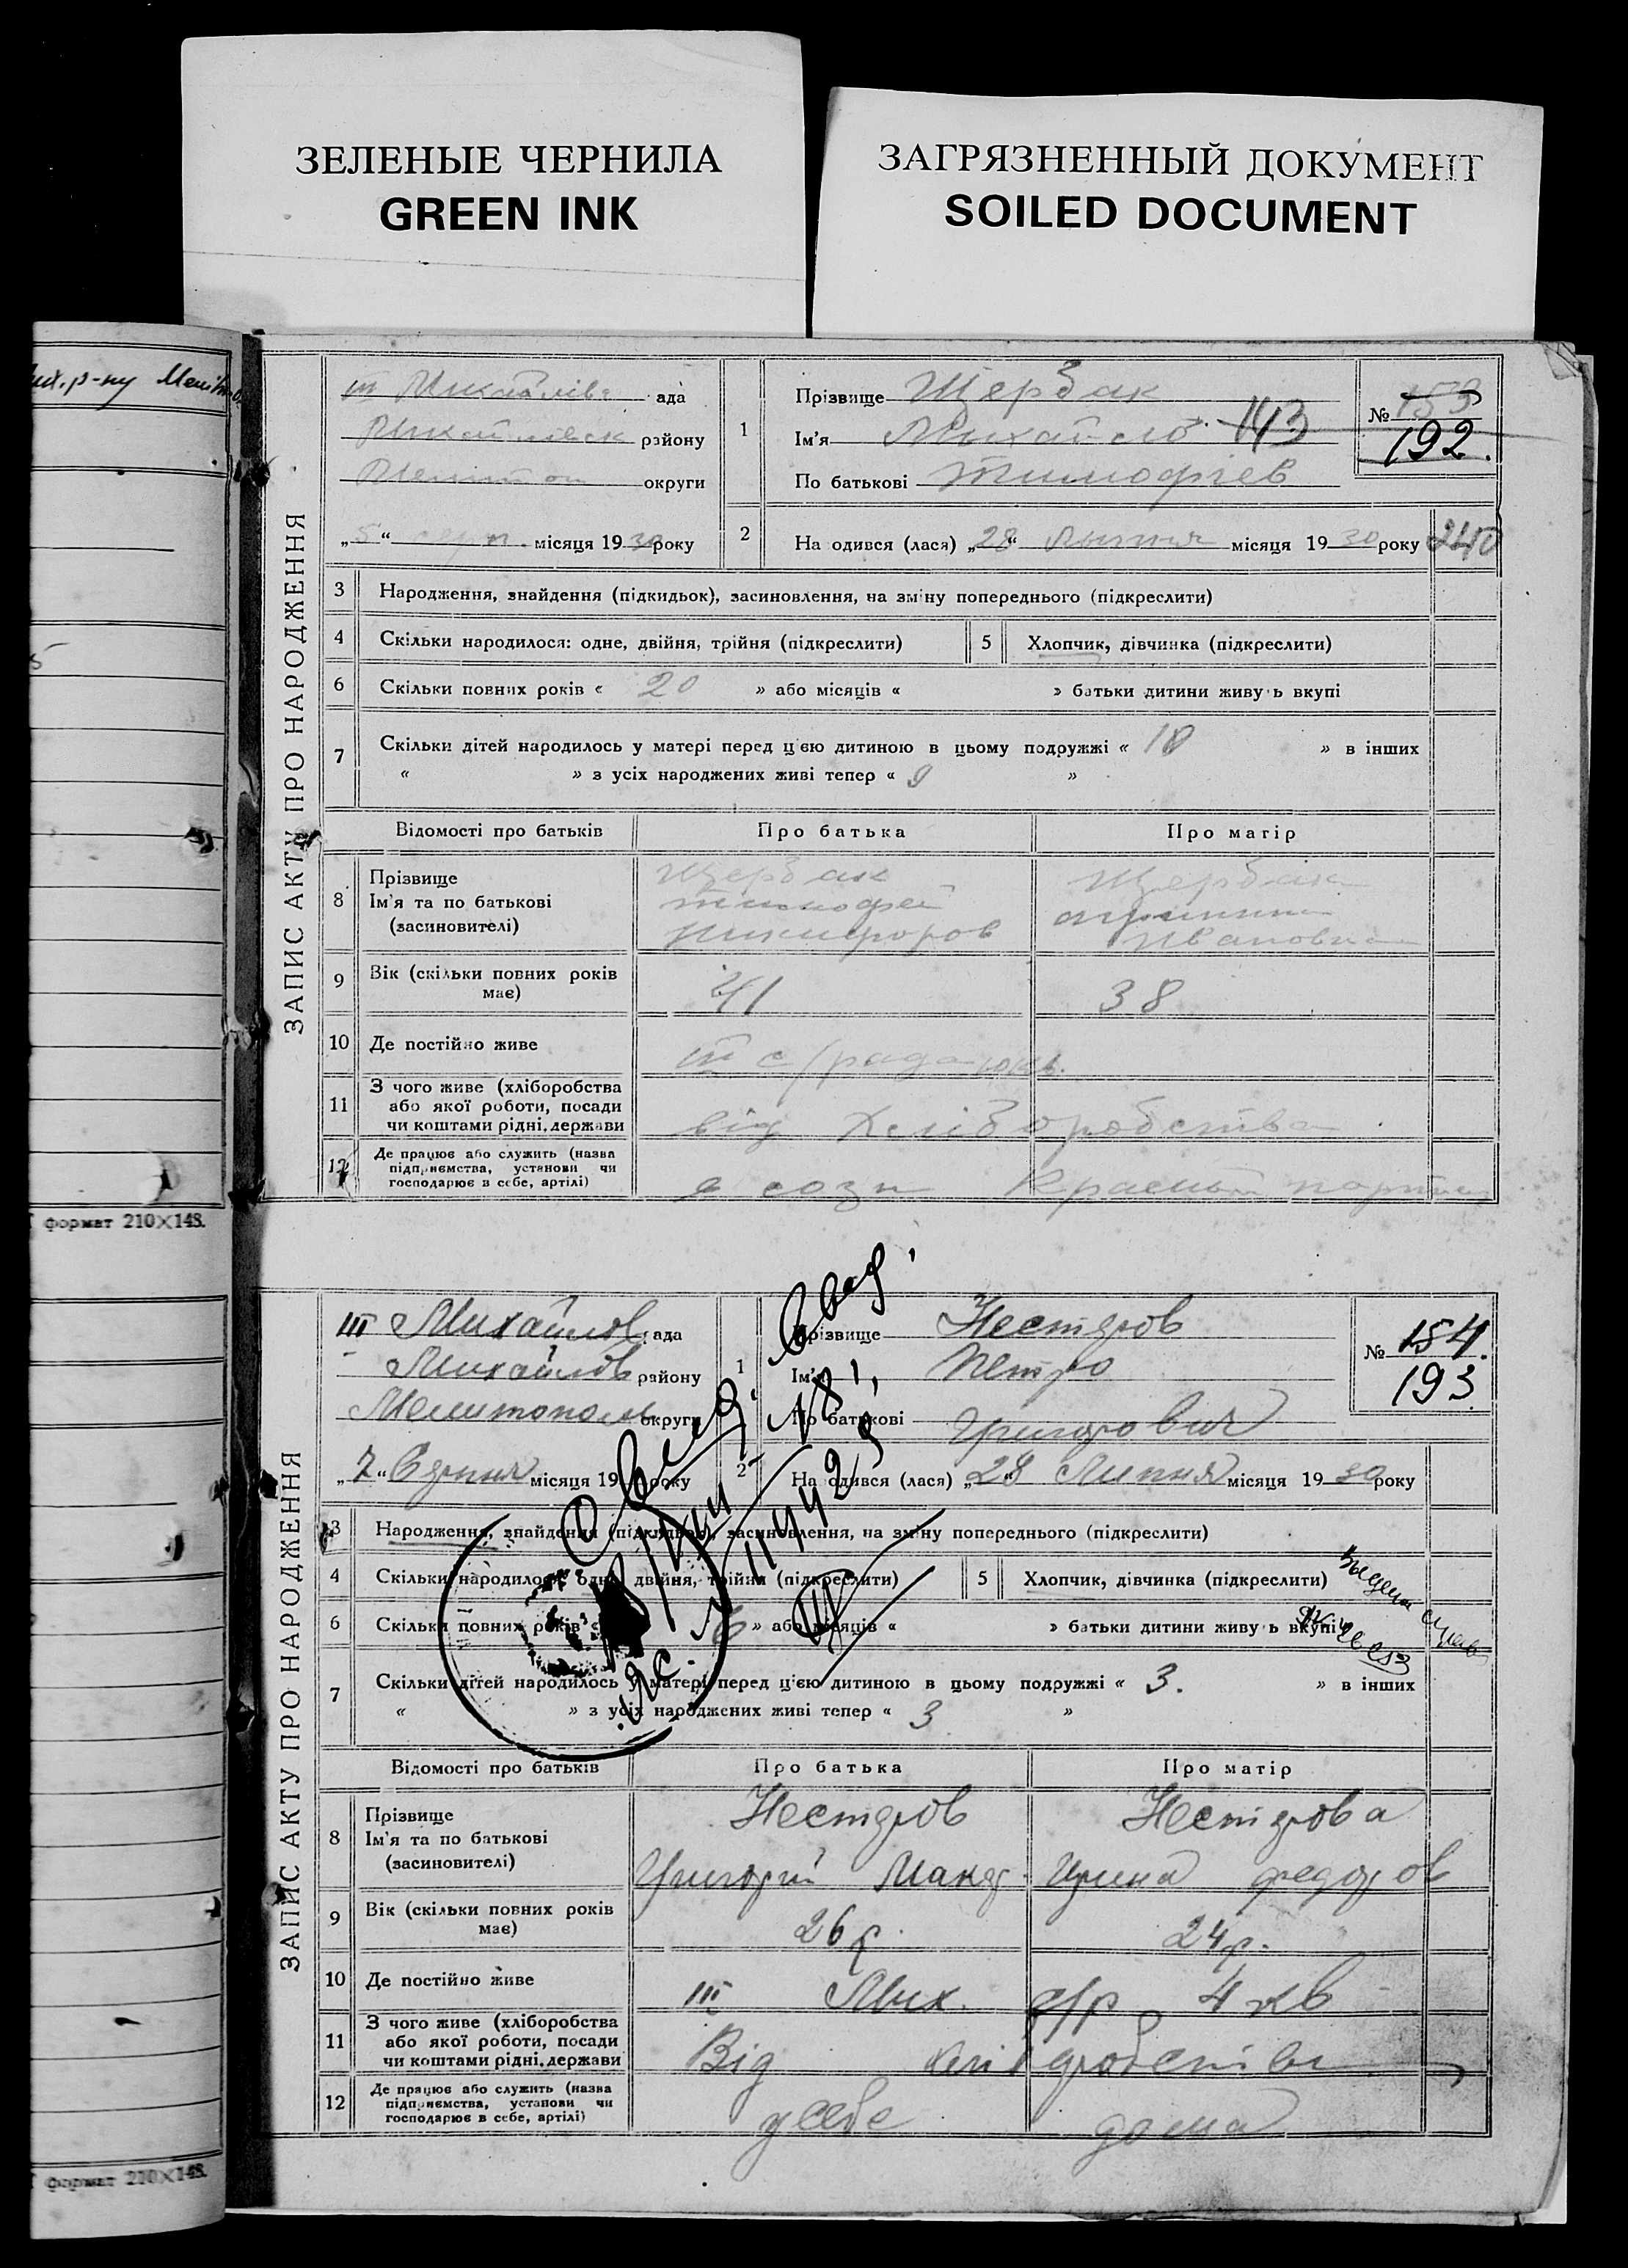 ЗЕЛЕНЫЕ ЧЕРНИЛА
GREEN INK
ЗАГРЯЗНЕННЫЙ ДОКУМЕНТ
SOILED DOCUMENT
формат 210×148.
формат 210×148.
ЗАПИС АКТУ ПРО НАРОДЖЕННЯ
III ада
району
округи
„5“ серп. місяця 1930 року
1
Прізвище Щербак
Ім'я Михайло 143
По батькові Тимофіев
№ 153
192.
2
На одився (лася) „28“ Липня місяця 1930 року
240
3 Народження, знайдення (підкидьок), засиновлення, на зміну попереднього (підкреслити)
4 Скільки народилося: одне, двійня, трійня (підкреслити)
5 Хлопчик, дівчинка (підкреслити)
6 Скільки повних років « 20 » або місяців « » батьки дитини живу ь вкупі
7 Скільки дітей народилось у матері перед цією дитиною в цьому подружжі « 10 » в інших
« » з усіх народжених живі тепер « 9 »
Відомості про батьків Про батька Про матір
8 Прізвище
Ім'я та по батькові
(засиновителі)
Щербак
Тимофей
Никифоров
Щербак
Ивановна
9 Вік (скільки повних років
має)
41 38
10 Де постійно живе
III с/рада
11 З чого живе (хліборобства
або якої роботи, посади
чи коштами рідні, держави
від Хліборобства
12 Де працює або служить (назва
підприємства, установи чи
господарює в себе, артілі)
в сози Красный
ЗАПИС АКТУ ПРО НАРОДЖЕННЯ
III Михайлов ада
Михайлов району
Мелитополь округи
„7“ Серпня місяця 19 року
1
Прізвище Нестеров
Ім'я Петро
По батькові Григорович
№ 154.
193
2
На одився (лася) „28“ Липня місяця 1930 року
3 Народження, знайдення (підкидьок), засиновлення, на зміну попереднього (підкреслити)
4 Скільки народилося: одне, двійня, трійня (підкреслити)
5 Хлопчик, дівчинка (підкреслити)
6 Скільки повних років « 6 » або місяців « » батьки дитини живу ь вкупі
7 Скільки дітей народилось у матері перед цією дитиною в цьому подружжі « 3. » в інших
« » з усіх народжених живі тепер « 3 »
Відомості про батьків Про батька Про матір
8 Прізвище
Ім'я та по батькові
(засиновителі)
Нестеров
Григорій
Нестерова
Ирина Федоров
9 Вік (скільки повних років
має)
26 р. 24 р.
10 Де постійно живе
III Мих. с/р 4 кв
11 З чого живе (хліборобства
або якої роботи, посади
чи коштами рідні, держави
Від хліборобства
12 Де працює або служить (назва
підприємства, установи чи
господарює в себе, артілі)
у себе дома